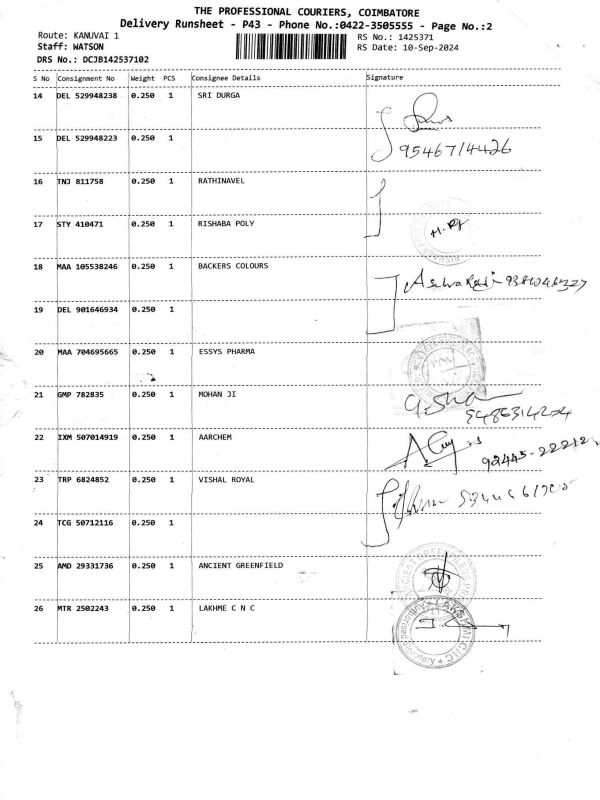 THE PROFESSIONAL COURIERS, COIMBATORE
Delivery Runsheet - P43 - Phone No.:0422-3505555 - Page No.:2
Route: KANUVAI 1 RS No.: 1425371
Staff: WATSON RS Date: 10-Sep-2024
DRS No.: DCJB142537102
S No Consignment No Weight PCS Consignee Details Signature
14 DEL 529948238 0.250 1 SRI DURGA
15 DEL 529948223 0.250 1
9546714426
16 TNJ 811758 0.250 1 RATHINAVEL
17 STY 410471 0.250 1 RISHABA POLY
18 MAA 105538246 0.250 1 BACKERS COLOURS
19 DEL 901646934 0.250 1
20 MAA 704695665 0.250 1 ESSYS PHARMA
21 GMP 782835 0.250 1 MOHAN JI
9486314204
22 IXM 507014919 0.250 1 AARCHEM
92445-22212
23 TRP 6824852 0.250 1 VISHAL ROYAL
24 TCG 50712116 0.250 1
25 AMD 29331736 0.250 1 ANCIENT GREENFIELD
26 MTR 2502243 0.250 1 LAKHME C N C